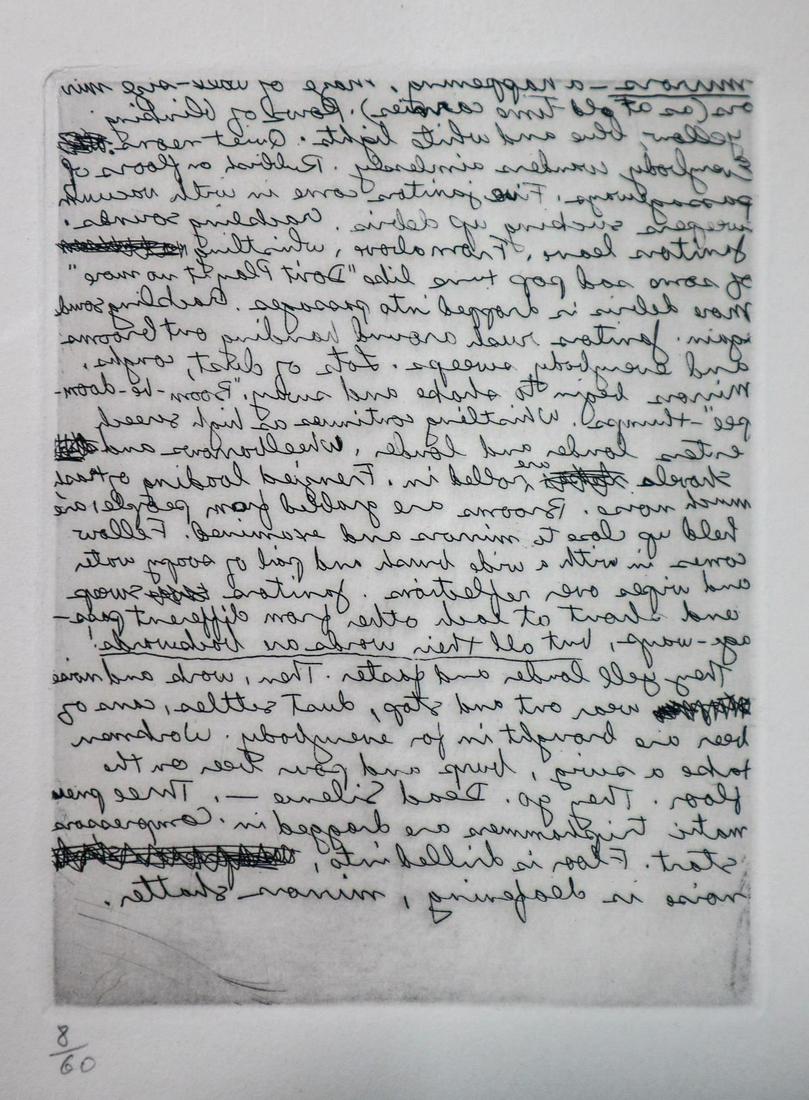 mirrors – a happening. Maze of wall-size mirr
ors (as at old time carnies). Rows of blinking
yellow, blue and white lights. Quiet neons.
Everybody wanders aimlessly. Rubbish on floors of
passageways. Five janitors come in with vacuum
sweepers sucking up debris. Crackling sounds.
Janitors leave. From above, whistling
of some sad pop tune like "Don't Play it no more"
More debris is dropped into passages. Crackling sound
again. Janitors rush around handing out brooms
and everybody sweeps. Lots of dust, coughs.
Mirrors begin to shake and sway. "Boom-be-doom-
pee"-thumps. Whistling continues as high screech
enters louder and louder. Wheelbarrows and
shovels are rolled in. Frenzied loading of trash
much more. Brooms are grabbed from people; are
held up close to mirrors and examined. Fellow
comes in with a wide brush and pail of soapy wate
and wipes over reflections. Janitors sweep
and shout at each other from different pass-
age-ways, but all their words are backwards!
They yell louder and faster. Then, work and noise
wear out and stop, dust settles, cans of
beer are brought in for everybody. Workmen
take a swig, burp, and pour beer on the
floor. They go. Dead Silence –. Three pneu
matic triphammers are dragged in. Compressors
start. Floor is drilled into,
noise is deafening, mirrors shatter.
8/60